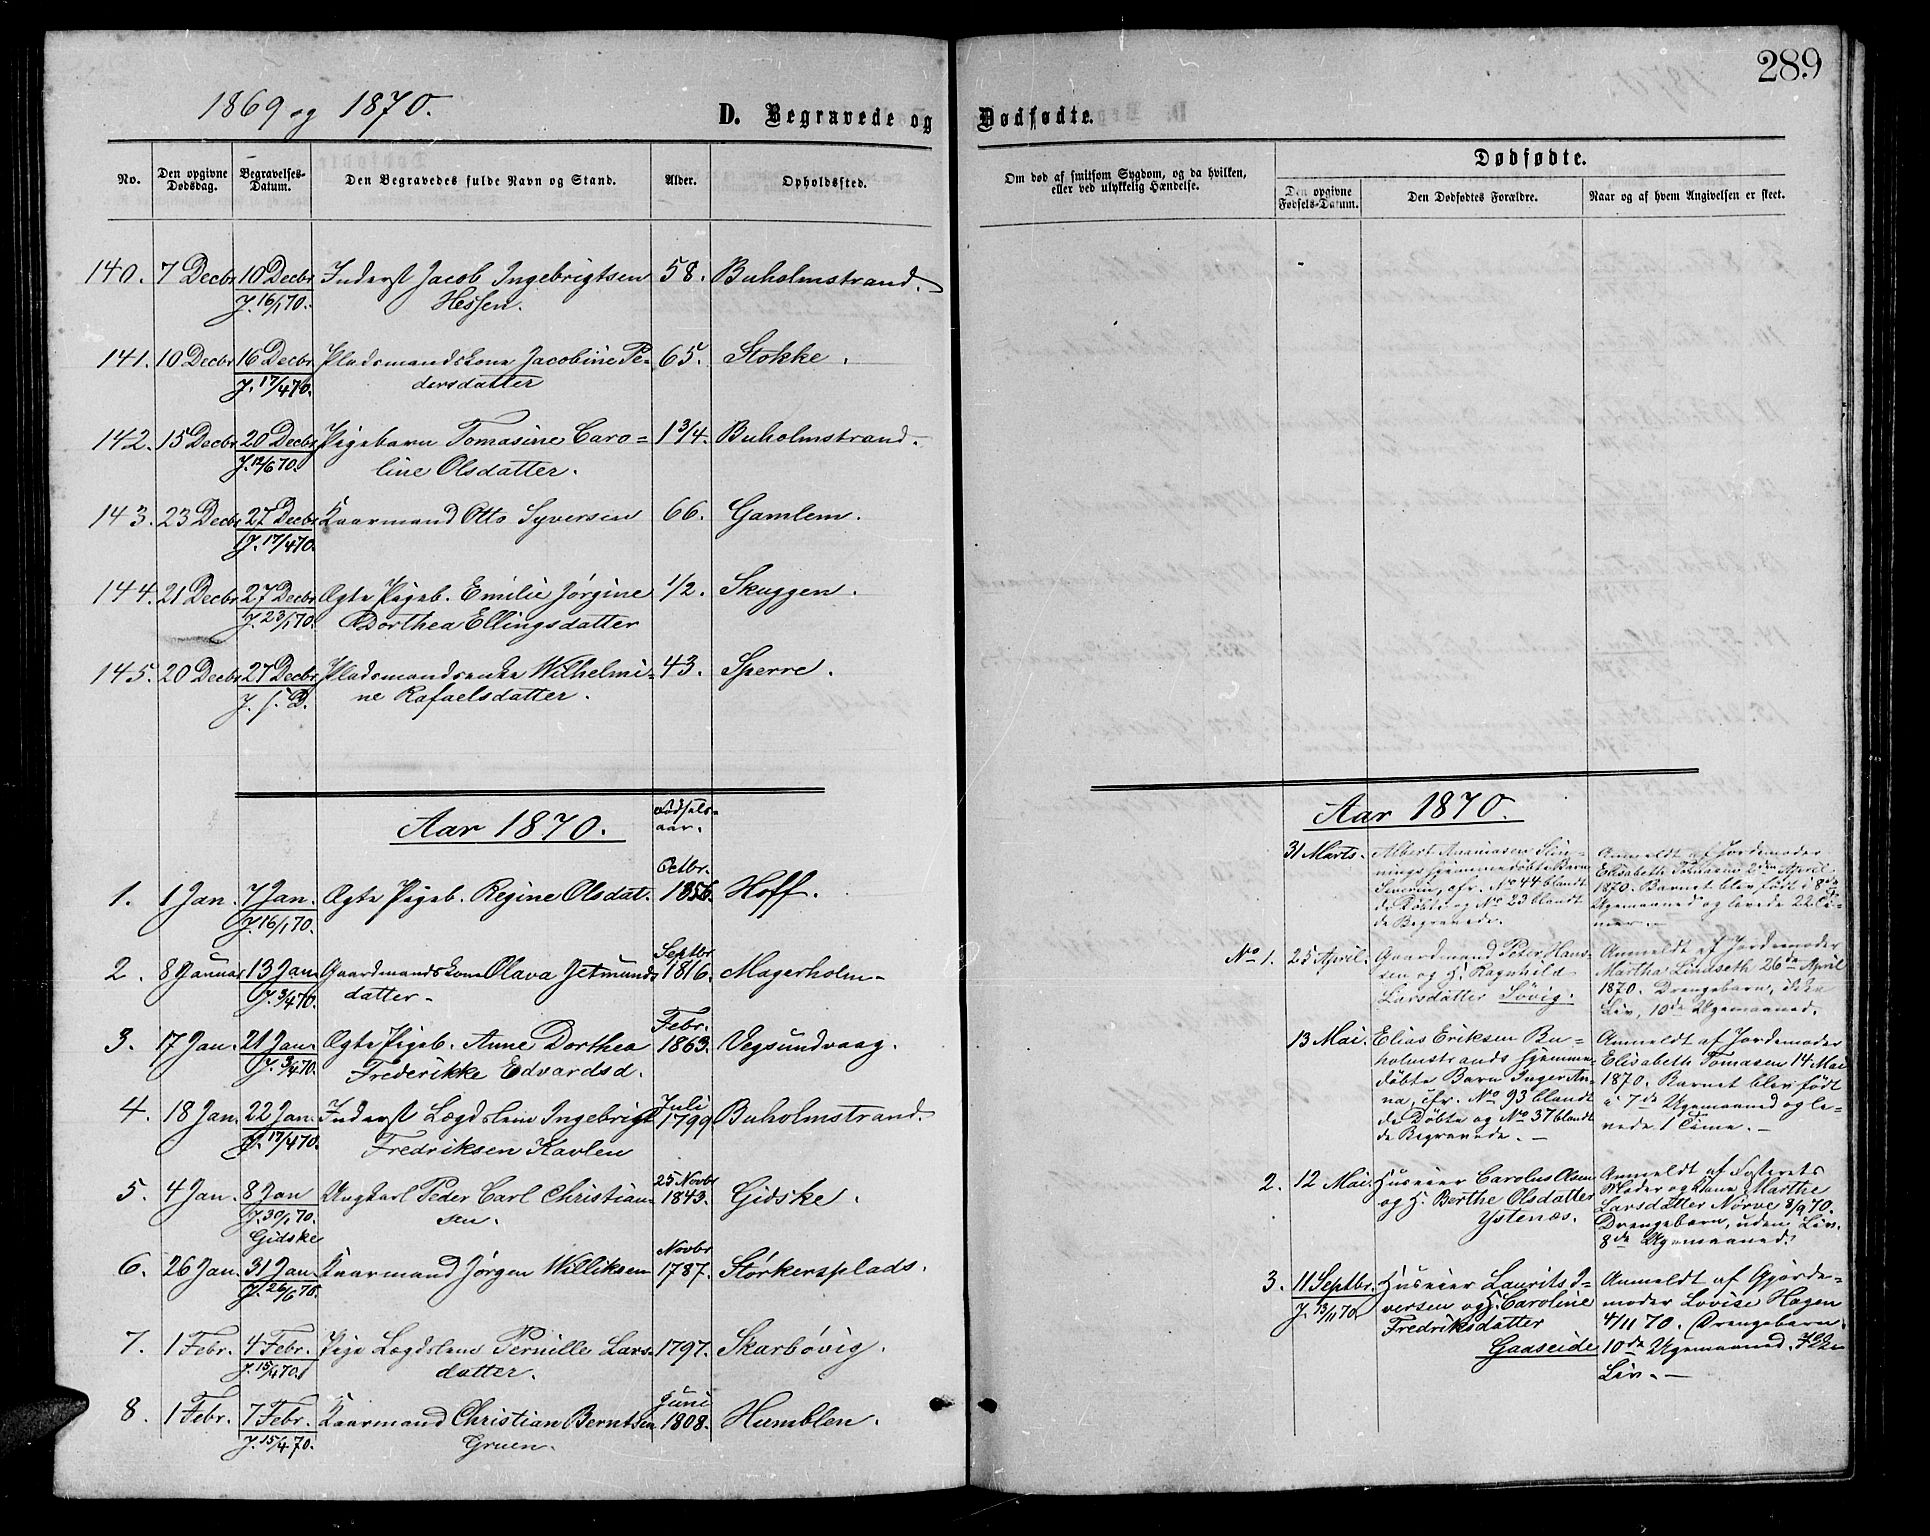 289
1869 og 1870.
D. Begravede og Dødfødte.
No.
Den opgivne Dødsdag.
Begravelses-Datum.
Den Begravedes fulde Navn og Stand.
Alder.
Opholdssted.
Om død af smitsom Sygdom, og da hvilken, eller ved ulykkelig Hændelse.
Dødfødte.
Den opgivne Fødsels-Datum.
Den Dødfødtes Forældre.
Naar og af hvem Angivelsen er skeet.
140. 7 Decbr 10 Decbr Inderst Jacob Ingebrigtsen 58. Buholmstrand.
J. 16/1 70. Hessen.
141. 10 Decbr 16 Decbr Pladsmandskone Jacobine Pe- 65. Stokke.
J. 17/4 70. dersdatter
142. 15 Decbr 20 Decbr Pigebarn Tomasine Caro= 1 3/4. Buholmstrand.
J. 12/6 70. line Olsdatter.
143. 23 Decbr 27 Decbr Kaarmand Otto Syversen 66. Gamlem.
J. 17/4 70.
144. 21 Decbr 27 Decbr Ægte Pigeb. Emilie Jørgine 1/2. Skuggen.
J. 23/1 70. Dorthea Ellingsdatter
145. 20 Decbr 27 Decbr Pladsmandsenke Wilhelmi- 43. Sperre.
J. s. D. ne Rafaelsdatter.
Aar 1870.
Fødsels-
aar.
Octbr.
1. 1 Jan. 7 Jan. Ægte Pigeb. Regine Olsdat. 1856. Hoff.
J. 16/1 70.
Septbr
2. 8 Januar 13 Jan. Gaardmandskone Olava Jetmunds 1816. Magerholm-
J. 3/4 70. datter-
Febr.
3. 17 Jan. 21 Jan. Ægte Pigeb. Anne Dorthea 1863. Vegsundvaag.
J. 3/4 70. Frederikke Edvardsd.
Juli
4. 18 Jan. 22 Jan. Inderst Lægdslem Ingebrigt 1799 Buholmstrand
J. 17/4 70. Fredriksen Kavlen
25 Novbr
5. 4 Jan. 8 Jan Ungkarl Peder Carl Christian- 1843. Gidske.
J. 30/1 70. sen.
Gidske
Novbr
6. 26 Jan. 31 Jan. Kaarmand Jørgen Williksen 1787. Størkersplads.
J. 26/6 70.
7. 1 Febr. 4 Febr. Pige Lægdslem Pernille Lars- 1797. Skarbøvig.
J. 15/4 70. datter.
Juni
8. 1 Febr. 7 Febr. Kaarmand Christian Berntsen 1808. Humblen.
J. 15/4 70. Gruen.
Aar 1870.
31 Marts. Albert Ananiasen Slin-
nings hjemmedøbte Barn
Severin, cfr. No 44 blandt
de Døbte og No 23 blandt
de Begravede.
Anmeldt af Jordemoder
Elisabeth Tomasen 2den April
1870. Barnet blev født i 8de
Ugemaaned og levede 22 Ti-
mer.-
No 1. 25 April. Gaardmand Peter Hans-
sen og H. Ragnhild
Larsdatter Søvig.
Anmeldt af Jordemoder
Martha Lindseth 26de April
1870. Drengebarn, ikke
Liv, 10de Ugemaaned.
13 Mai. Elias Eriksen Bu-
holmstrands hjemme
døbte Barn Inger An-
na, cfr. No 93 blandt
de Døbte og No 37 blandt
de Begravede. -
Anmeldt af Jordemoder
Elisabeth Tomasen 14 Mai
1870. Barnet blev født
i 7de Ugemaaned og le-
vede 1 Time. -
2. 12 Mai. Huseier Carolus Olsen
og H. Berthe Olsdatter
Ystenæs.
Anmeldt af Fosterets
Moder og Kone Marthe
Larsdatter Nørve 8/9 70.
Drengebarn, uden Liv.
8de Ugemaaned.
3. 11 Septbr. Huseier Laurits I-
J. 13/11 70. versen og H. Caroline
Fredriksdatter
Gaaseide
Anmeldt af Gjorde-
moder Lovise Hagen
4/11 70. Drengebarn.
10de Ugemaaned.
Liv. -